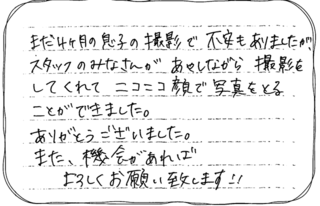 まだ4ヶ月の息子の撮影で 不安もありましたが、
スタッフのみなさんが あやしながら 撮影を
してくれて ニコニコ顔で写真をとる
ことができました。
ありがとうございました。
また、機会があれば
よろしくお願い致します!!